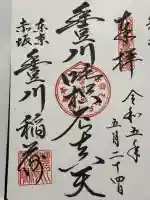 奉拝
令和五年
五月二十四日
豊川吒枳尼眞天
東京
赤坂
豊川稲荷